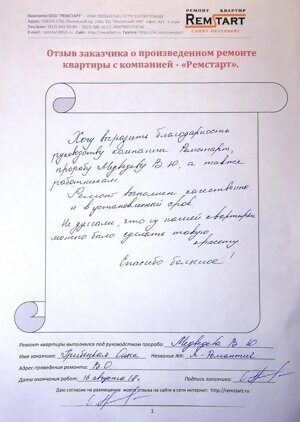 РЕМОНТ КВАРТИР
REMSTART
САНКТ-ПЕТЕРБУРГ
Компания ООО "РЕМСТАРТ"
Отзыв заказчика о произведенном ремонте
квартиры с компанией - «Ремстарт».
Хочу выразить благодарность
руководству компании Ремстарт,
прорабу Медведеву В.Ю, а также
работникам.
Ремонт выполнен качественно
и в установленный срок
Не думали, что из нашей квартиры
можно было сделать такую
красоту
Спасибо большое!
Ремонт квартиры выполнялся под руководством прораба: Медведева В.Ю
Имя заказчика: Елена Название ЖК: Я-Романтик
Адрес проведения ремонта: В.О
Дата окончания работ: 16 августа 18г. Подпись заказчика:
Даю согласие на размещение моего отзыва на сайте в сети интернет: http://remstart.ru
1